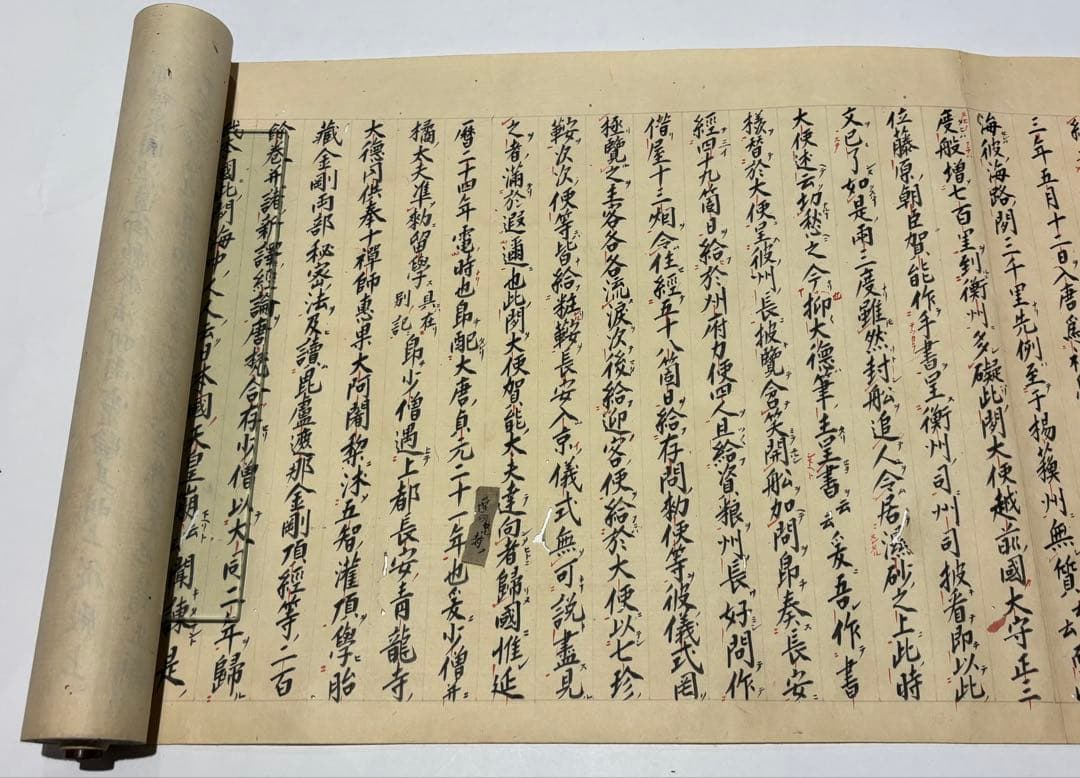 三年五月十二日入唐
海彼海路間三千里先例至于楊蘓州無
度般增七百里到衡州多礙此間大使越前國大守正三
位藤原朝臣賀能作手書呈衡州司州司披看即以此
文已了如是兩三度雖然封舩追人令居濕砂之上此時
大使述云切愁之今抑大德筆主呈書云云爰吾作書
樣替於大使呈彼州長披覽含笑開舩加問即奏長安
經四十九箇日給於州府力使四人且給資粮州長好問作
借屋十三烟令住經五十八箇日給存問勅使等彼儀式罔
極覽之主客各各流淚次後給迎客使給於大使以七珍
鞍次次使等皆給粧鞍長安入京儀式無可說盡見
之者滿於遐邇也此間大使賀能大夫達向者歸國惟延
曆二十四年 時也即配大唐貞元二十一年也爰少僧并
橘大夫准勅留學具在別記即少僧遇上都長安青龍寺
大德内供奉十禪師惠果大阿闍黎沐五智灌頂學胎
藏金剛兩部秘密法及讀毘盧遮那金剛頂經等二百
餘卷并諸新譯經論唐梵合存少僧以大同二年歸
我本國此間海中人人云日本國天皇崩云聞 是